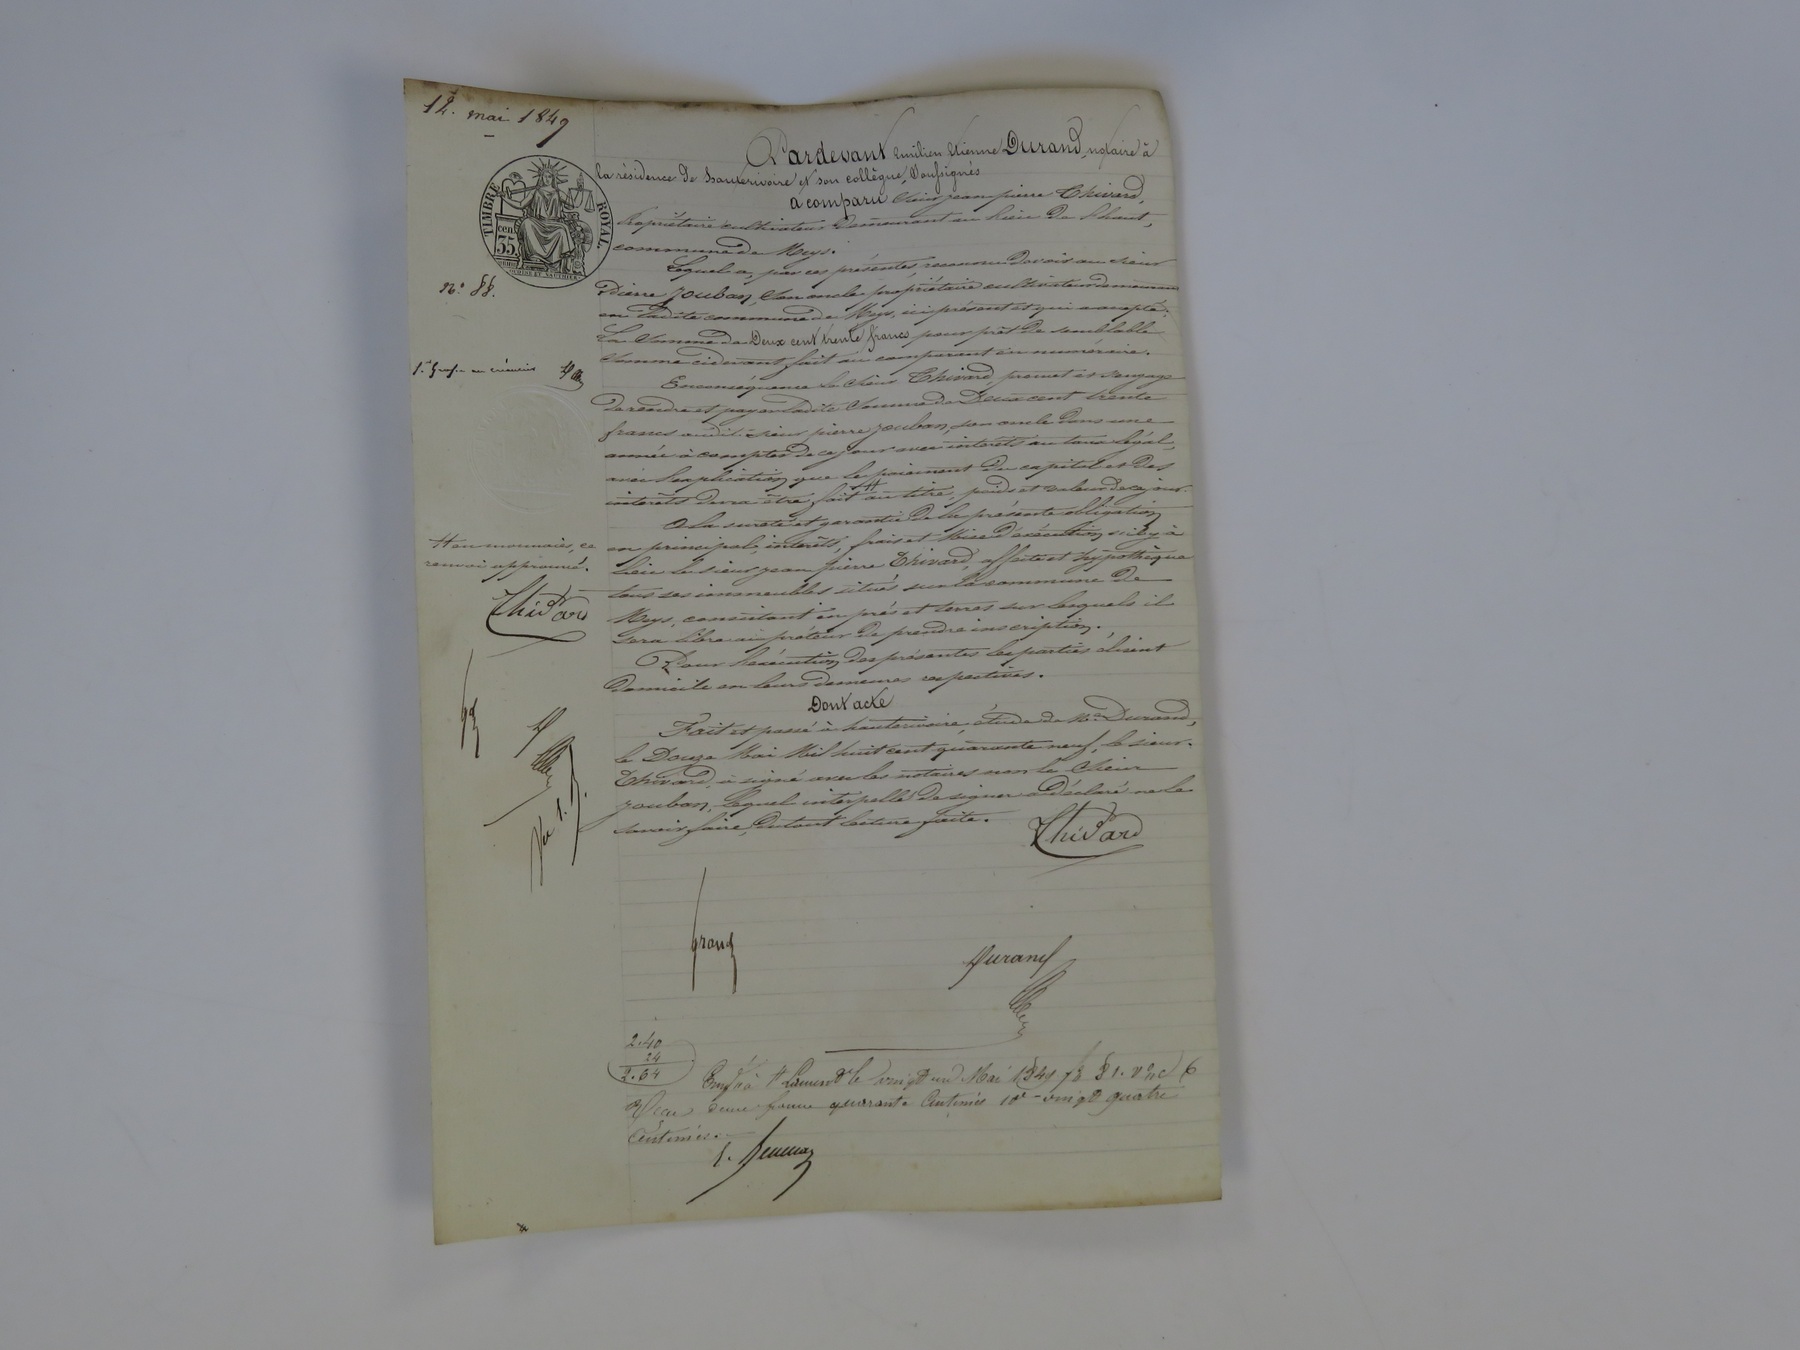 12. mai 1849
Pardevant Emilien Etienne Durand, notaire à
la résidence de hauterivoire et son collègue, soussignés
a comparu Sieur jean pierre Thivard,
propriétaire cultivateur demeurant au lieu de
commune de Meys.
Lequel a, par ces présentes, reconnu devoir au sieur
Pierre Jouban, son oncle propriétaire cultivateur demeurant
en ladite commune de Meys, ici présent et qui a accepté:
La Somme de Deux cent trente francs pour prêt de semblable
somme cidevant fait au comparant en numéraire.
Enconséquence le sieur Thivard, promet et s'engage
de rendre et payer ladite Somme de Deux cent trente
francs audit sieur pierre Jouban, son oncle dans une
année à compter de ce jour avec intérêts au taux légal,
avec explication que le paiement du capital et des
intérêts devra être fait # au titre, poids et valeur de ce jour.
A la sureté et garantie de la présente obligation
en principal, intérêts, frais et mise d'exécution s'il y a
lieu le sieur jean pierre Thivard, affecte et hypothèque
tous ses immeubles situés sur la commune de
Meys, consistant en prés et terres sur lesquels il
sera libre au prêteur de prendre inscription.
Pour l'exécution des présentes les parties élisent
domicile en leurs demeures respectives.
Dont acte
Fait et passé à hauterivoire, étude de Me Durand,
le Douze Mai Mil huit cent quarante neuf, le sieur
Thivard, a signé avec les notaires non le sieur
Jouban, lequel interpellé de signer a déclaré ne le
savoir faire, du tout lecture faite.
Thivard
grand
Durand
TIMBRE ROYAL.
cen
35
n.° 88.
1re grosse au créancier
# en monnaies, ce
renvoi approuvé.
Thivard
2.40
24
2.64
à St Laurent le vingt un Mai 1849 f° 81. v° c 6
Reçu deux francs quarante Centimes 10e vingt quatre
Centimes.